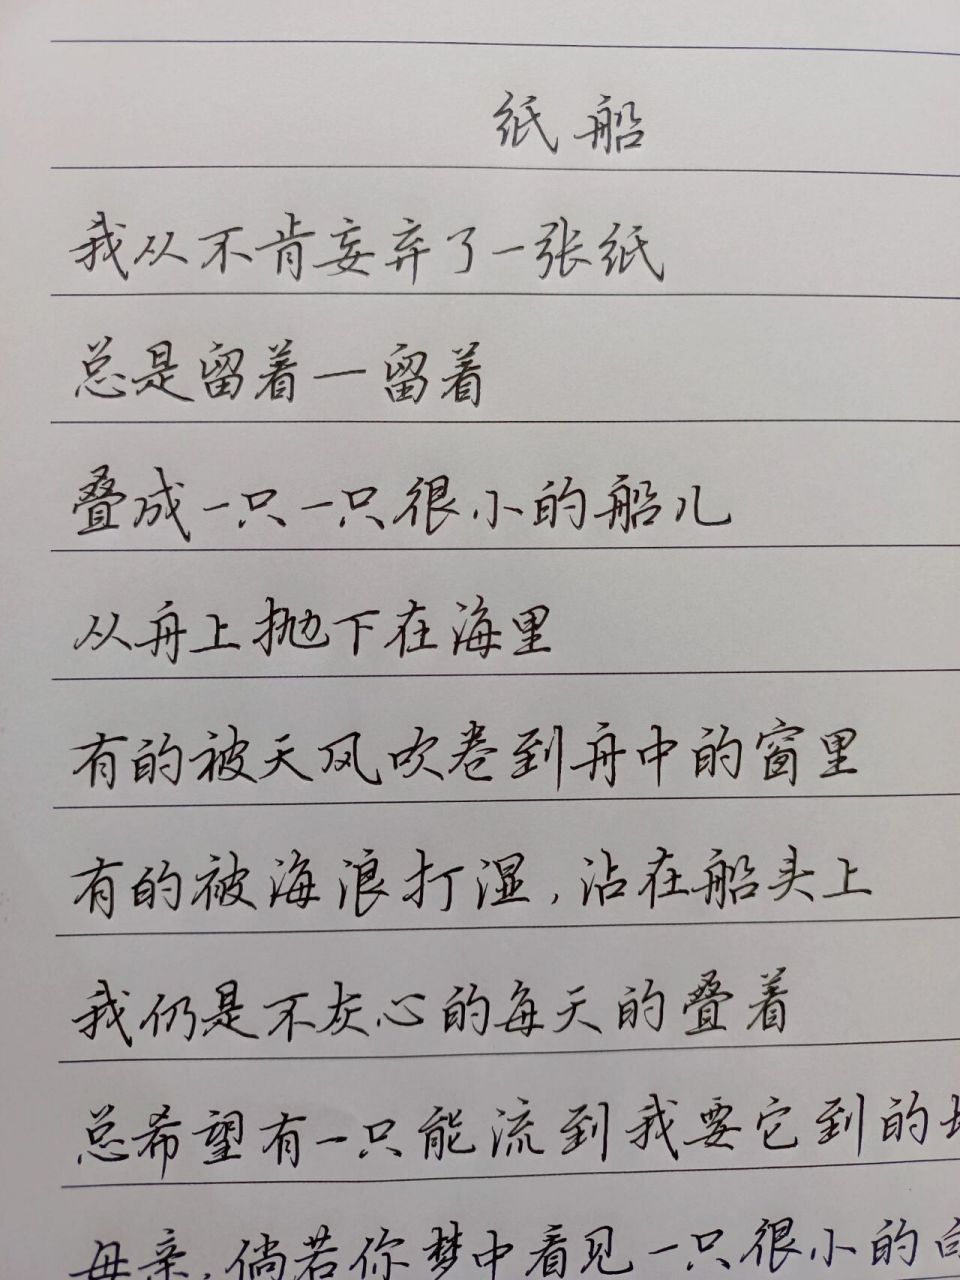 纸船
我从不肯妄弃了一张纸
总是留着一留着
叠成一只一只很小的船儿
从舟上抛下在海里
有的被天风吹卷到舟中的窗里
有的被海浪打湿,沾在船头上
我仍是不灰心的每天的叠着
总希望有一只能流到我要它到的
母亲,倘若你梦中看见一只很小的